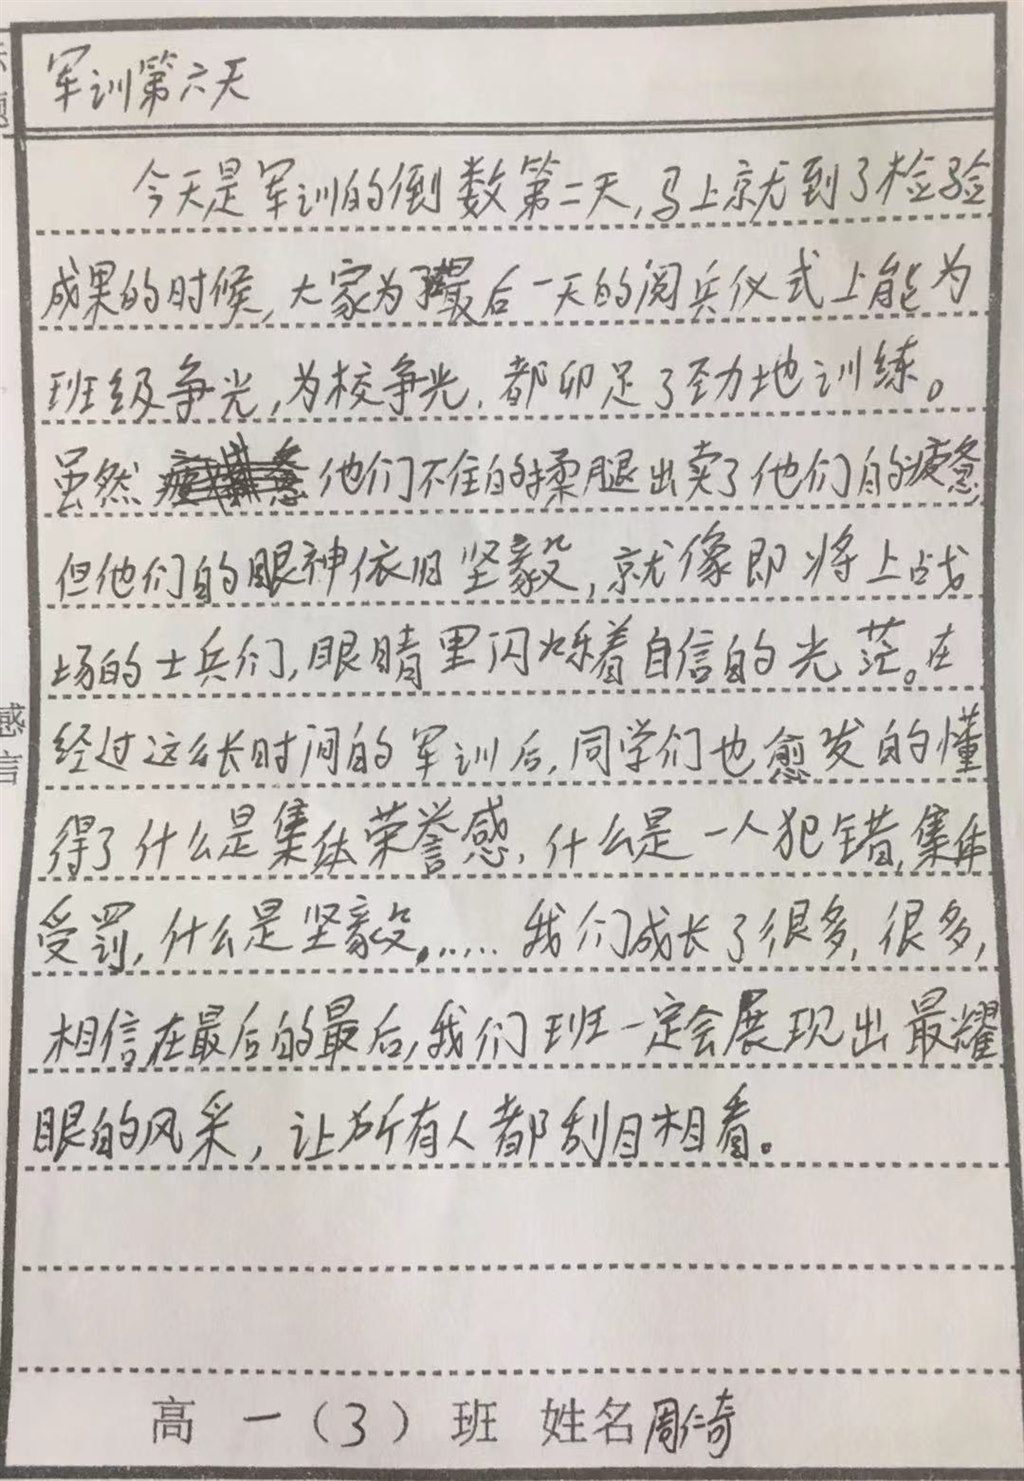 军训第六天
今天是军训的倒数第二天,马上就到了检验
成果的时候,大家为了最后一天的阅兵仪式上能为
班级争光,为校争光,都卯足了劲地训练。
虽然他们不住的揉腿出卖了他们的疲惫
但他们的眼神依旧坚毅,就像即将上战
场的士兵们,眼睛里闪烁着自信的光茫。在
感言
经过这么长时间的军训后,同学们也愈发的懂
得了什么是集体荣誉感,什么是一人犯错,集体
受罚,什么是坚毅,……我们成长了很多,很多,
相信在最后的最后,我们班一定会展现出最耀
眼的风采,让所有人都刮目相看。
高一(3)班 姓名周仁奇